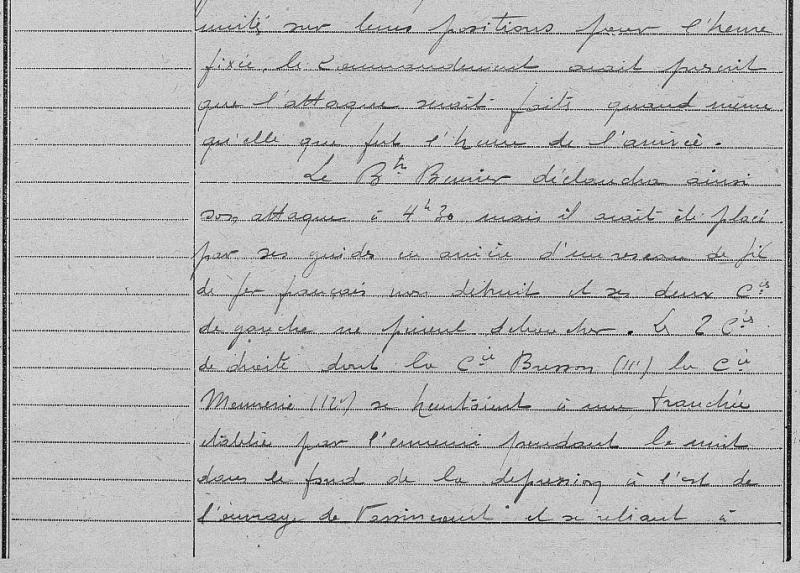 unités sur leurs positions pour l'heure
fixée, le Commandement avait prescrit
que l'attaque serait faite quand même
qu'elle que fut l'heure de l'arrivée.
Le Bon déclancha ainsi
son attaque à 4h30 mais il avait été placé
par ses guides en arrière d'un reseau de fil
de fer français non detruit et ses deux Cies
de gauche ne purent déboucher. Les 2 Cies
de droite dont la Cie Busson (11e) la Cie
(12e) se heurtaient à une tranchée
établie par l'ennemi pendant la nuit
dans le fond de la depression à l'est de
l'ouvrage de Vassincourt et se reliant à